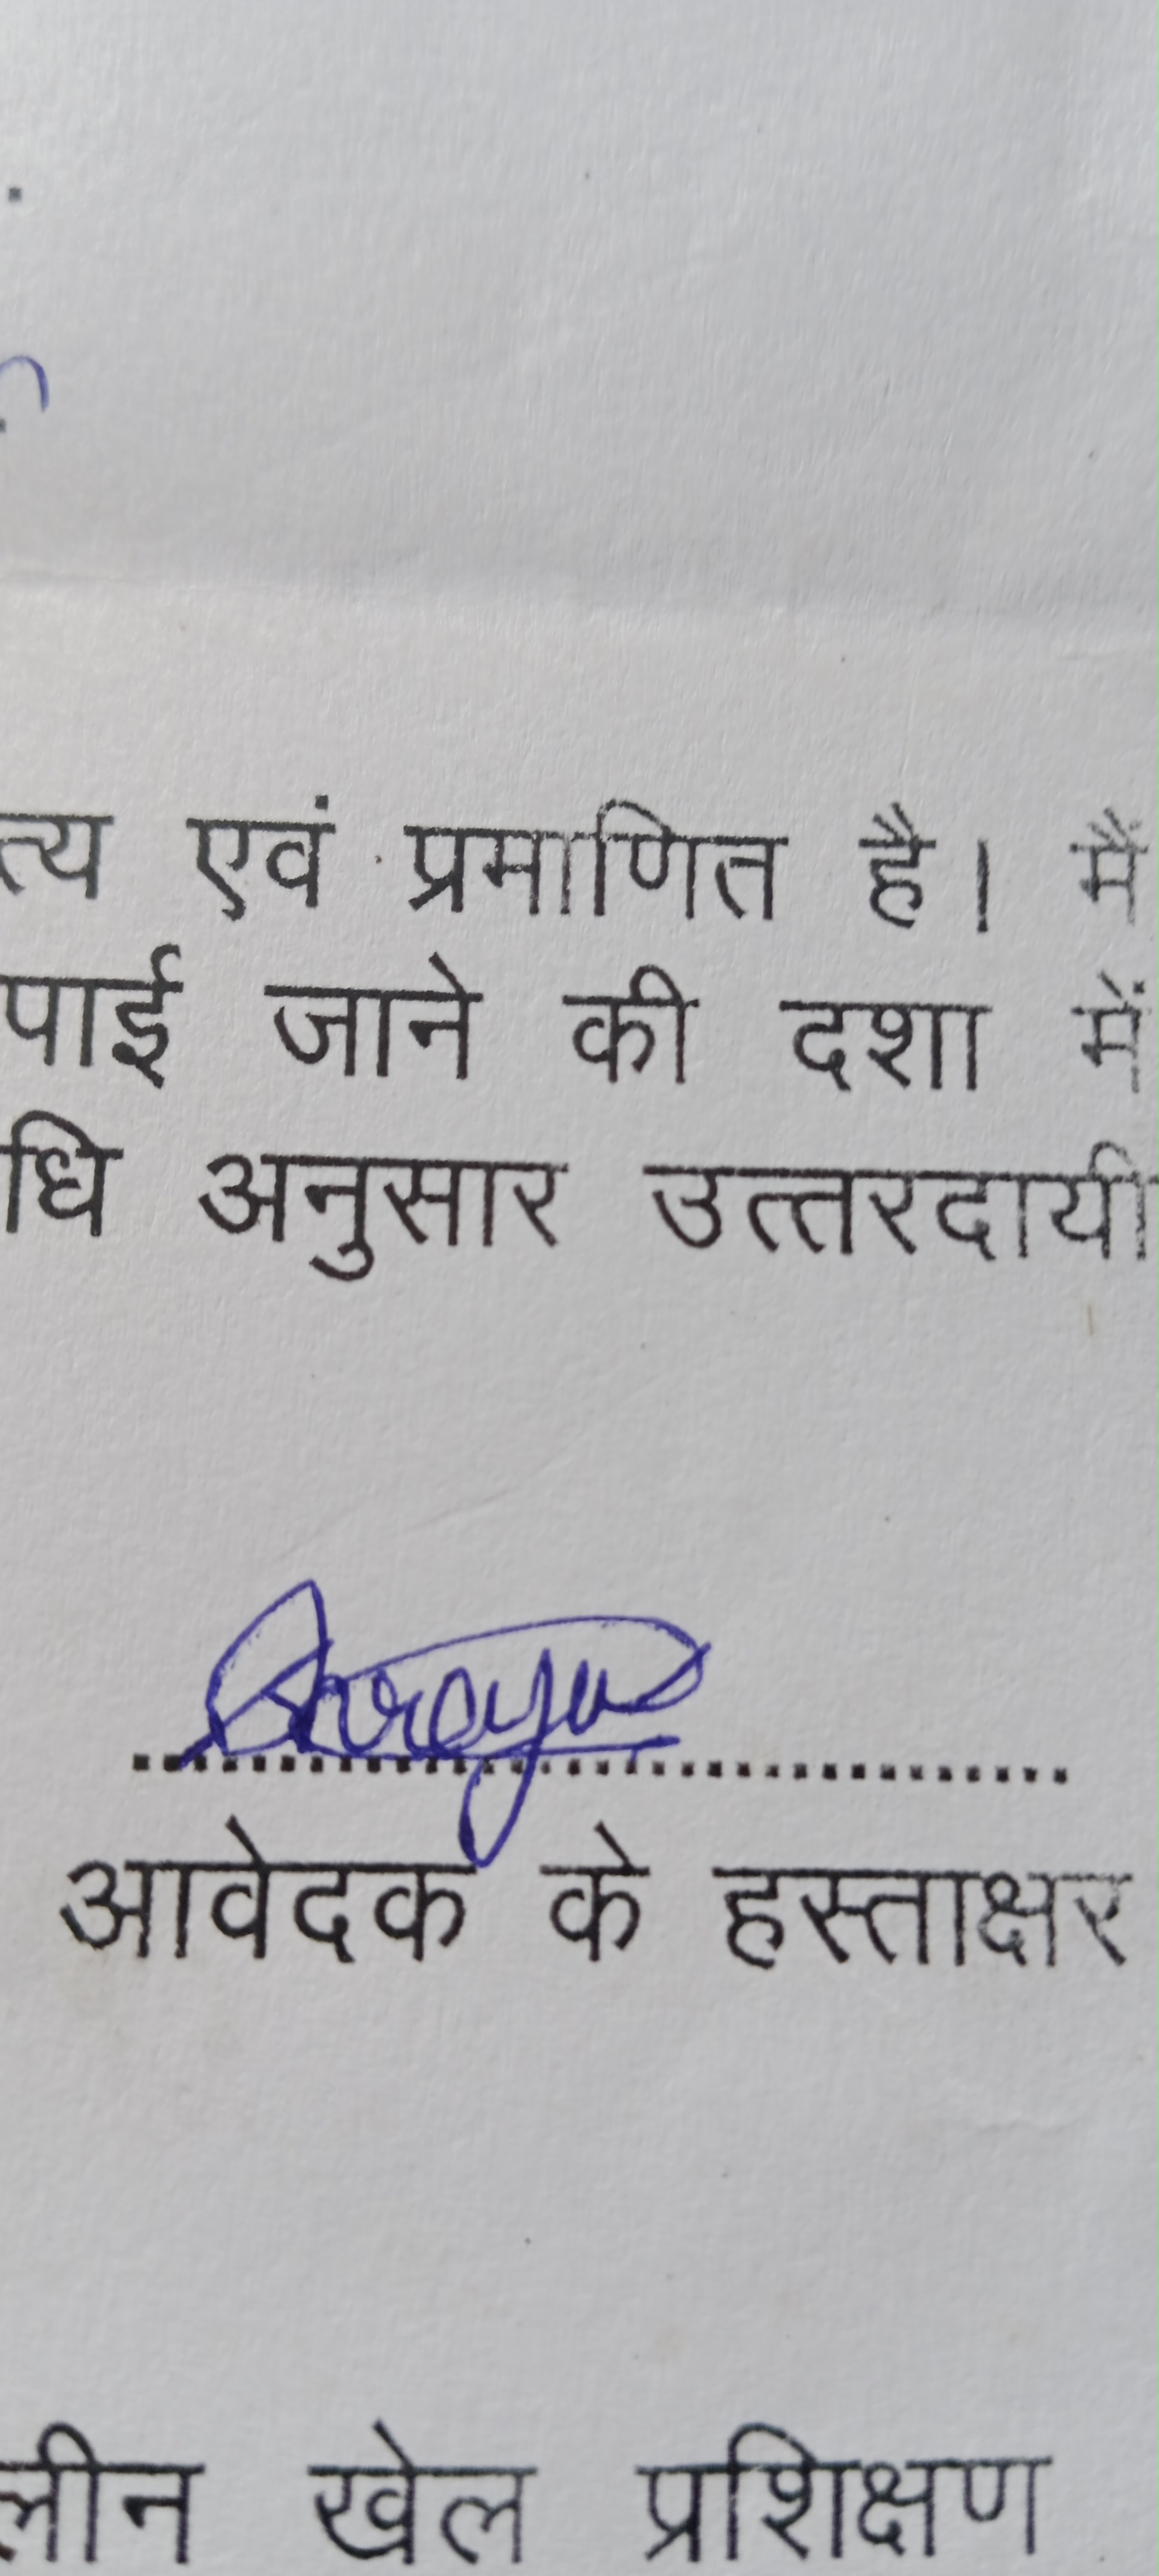 त्य एवं प्रमाणित है। मैं
पाई जाने की दशा में
धि अनुसार उत्तरदायी
आवेदक के हस्ताक्षर
लीन खेल प्रशिक्षण